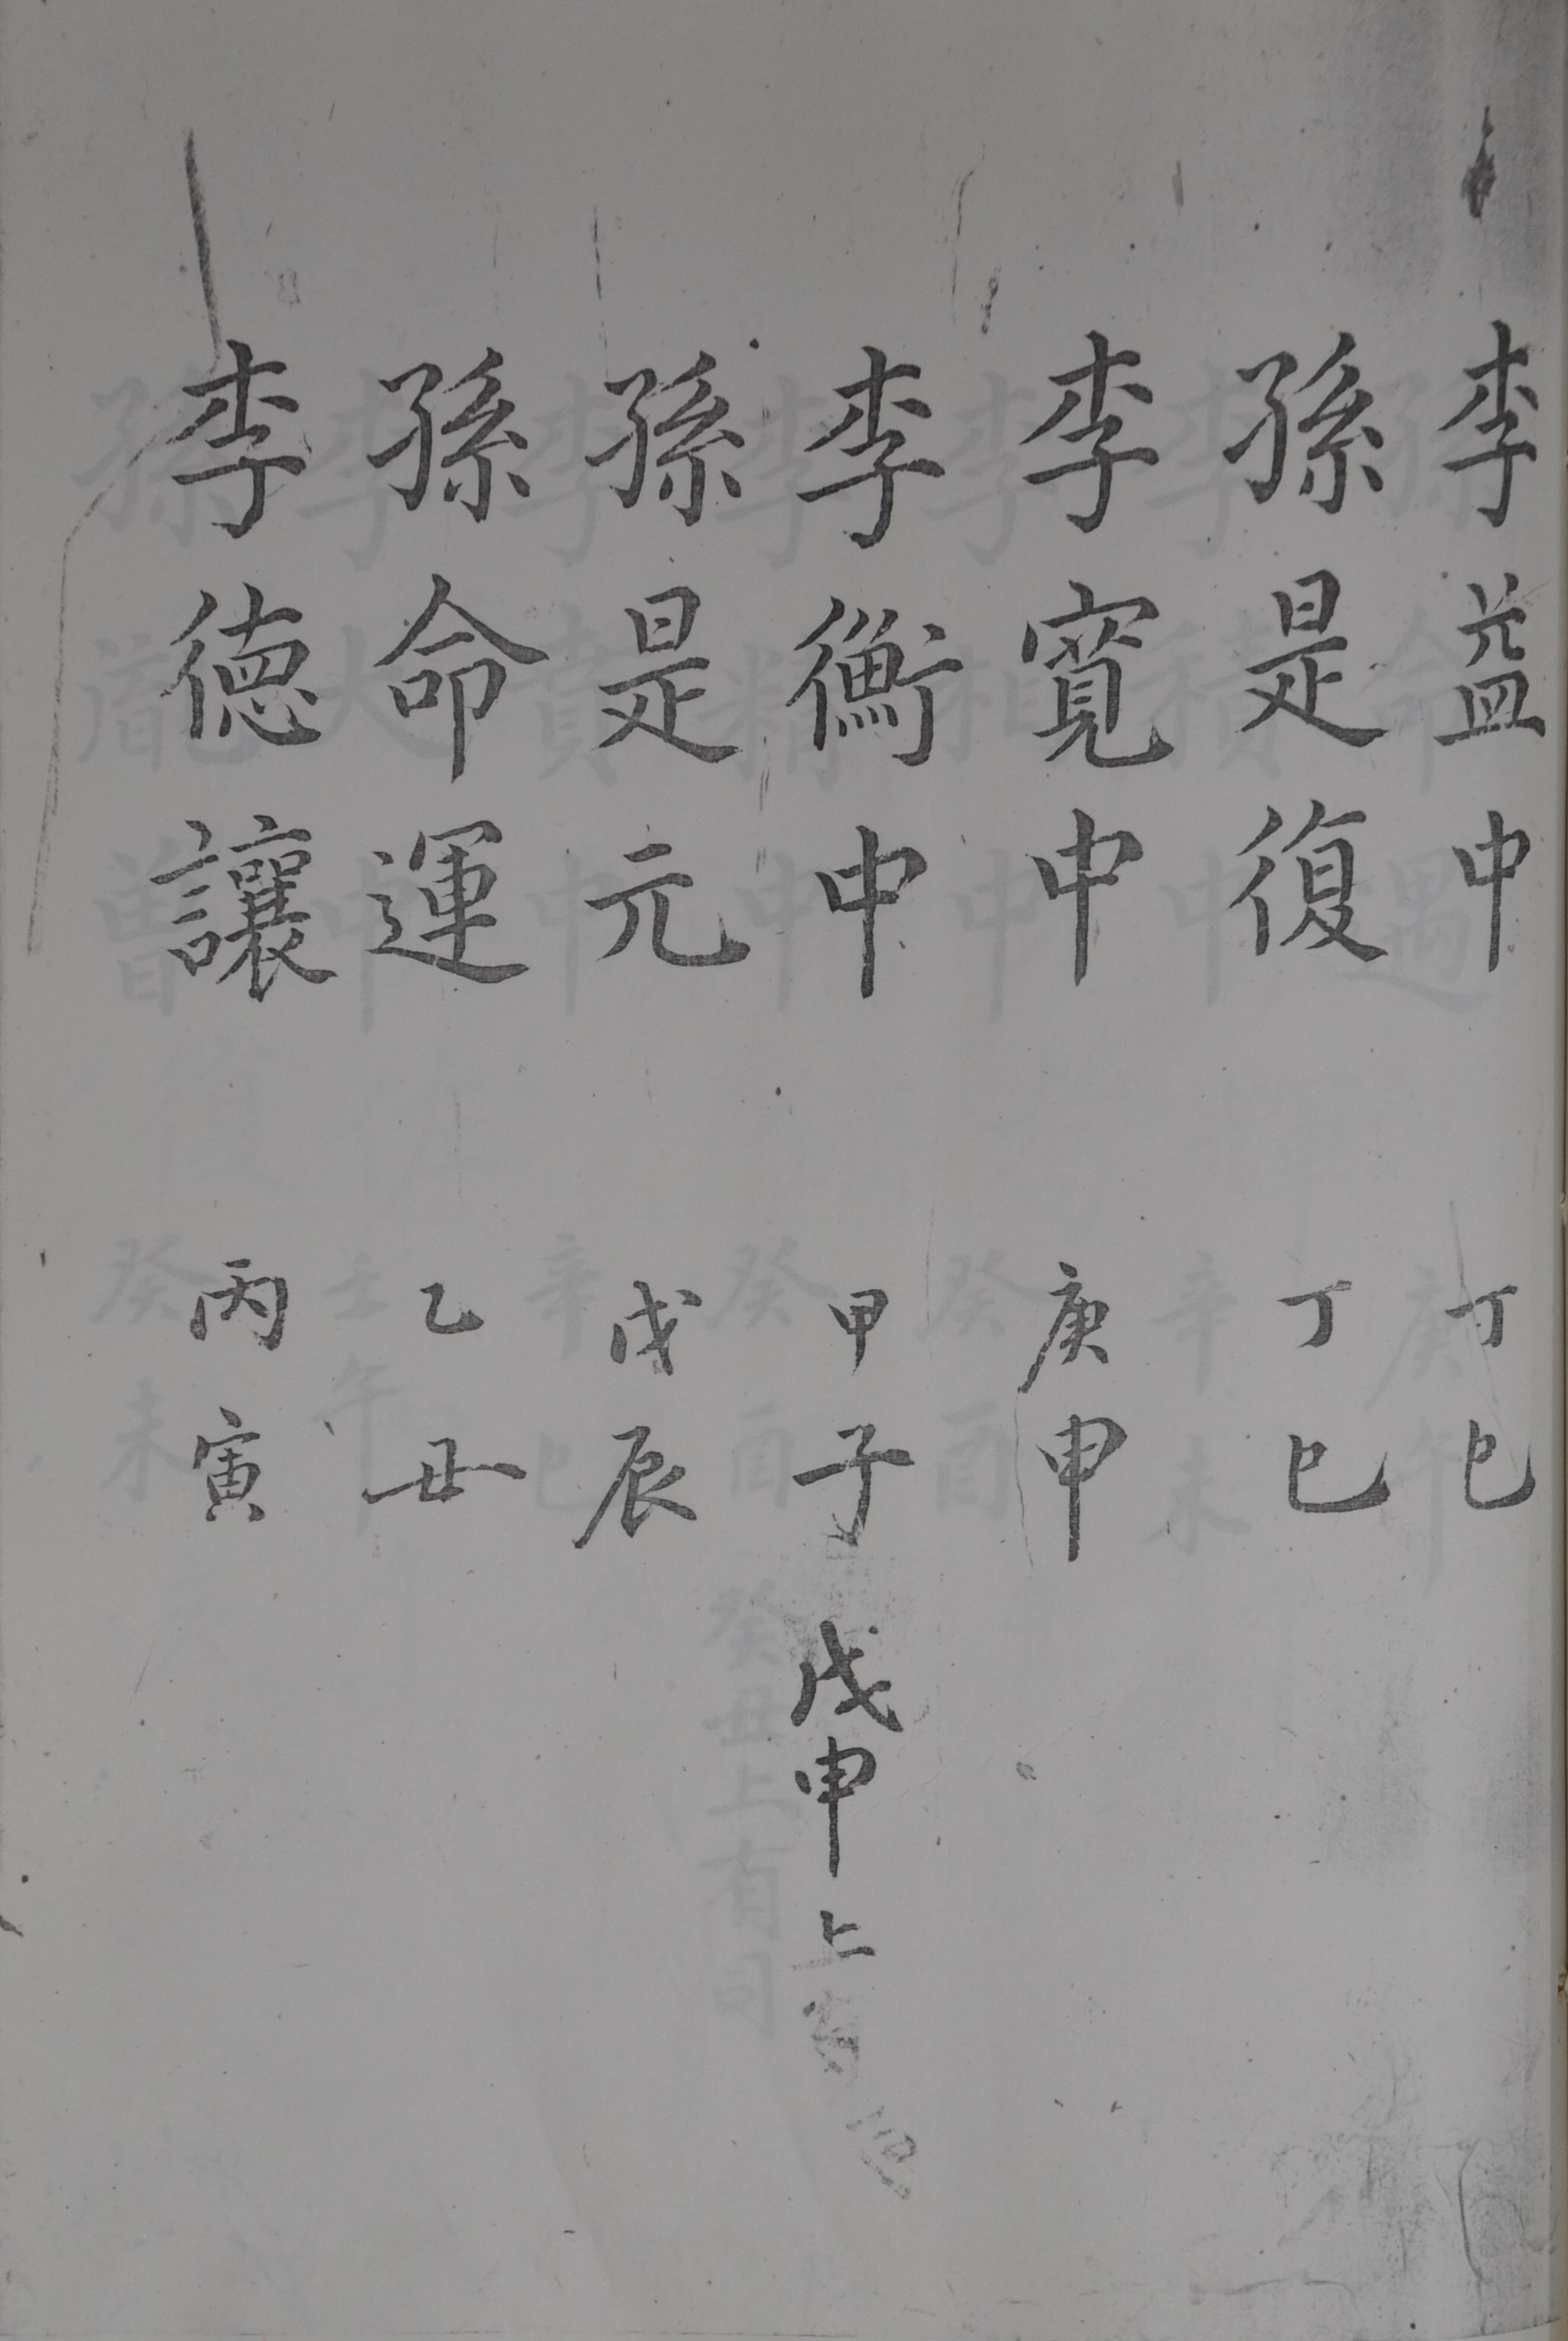 李益中 丁巳
孫是復 丁巳
李寬中 庚申
李衡中 甲子 戊申上
孫是元 戊辰
孫命運 乙丑
李德讓 丙寅